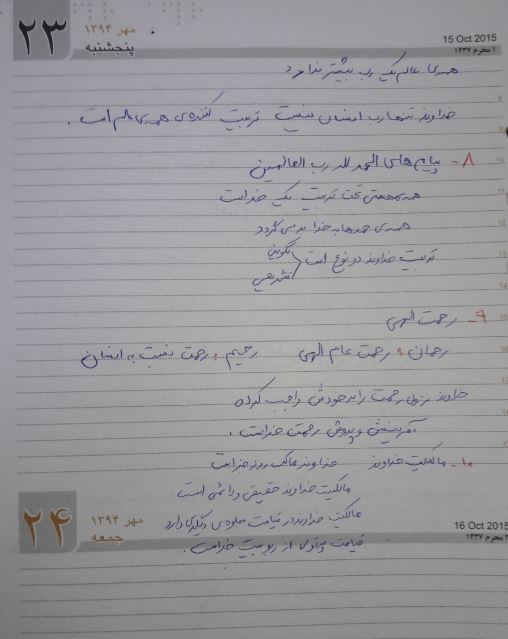 ۲۳
مهر ۱۳۹۴
پنجشنبه
15 Oct 2015
۱ محرم ۱۴۳۷
همه‌ی عالم یک رب بیشتر ندارد
خداوند تنها رب انسان نیست تربیت کننده‌ی همه‌ی عالم است.
۸- پیام های الحمد لله رب العالمین
همه‌ی هستی تحت تربیت یک خداست
همه‌ی حمدها به خدا بر می گردد
تربیت خداوند دو نوع است تکوینی
تشریعی
۹- رحمت الهی
رحمان: رحمت عام الهی رحیم: رحمت نسبت به انسان
خداوند نزول رحمت را بر خودش واجب کرده
آفرینش و پرورش رحمت خداست.
۱۰- مالکیت خداوند خداوند مالک روز جزاست
مالکیت خداوند حقیقی و دائمی است
مالکیت خداوند در قیامت جلوه‌ی دیگری دارد
قیامت پرتوی از ربوبیت خداست.
۲۴
مهر ۱۳۹۴
جمعه
16 Oct 2015
۲ محرم ۱۴۳۷